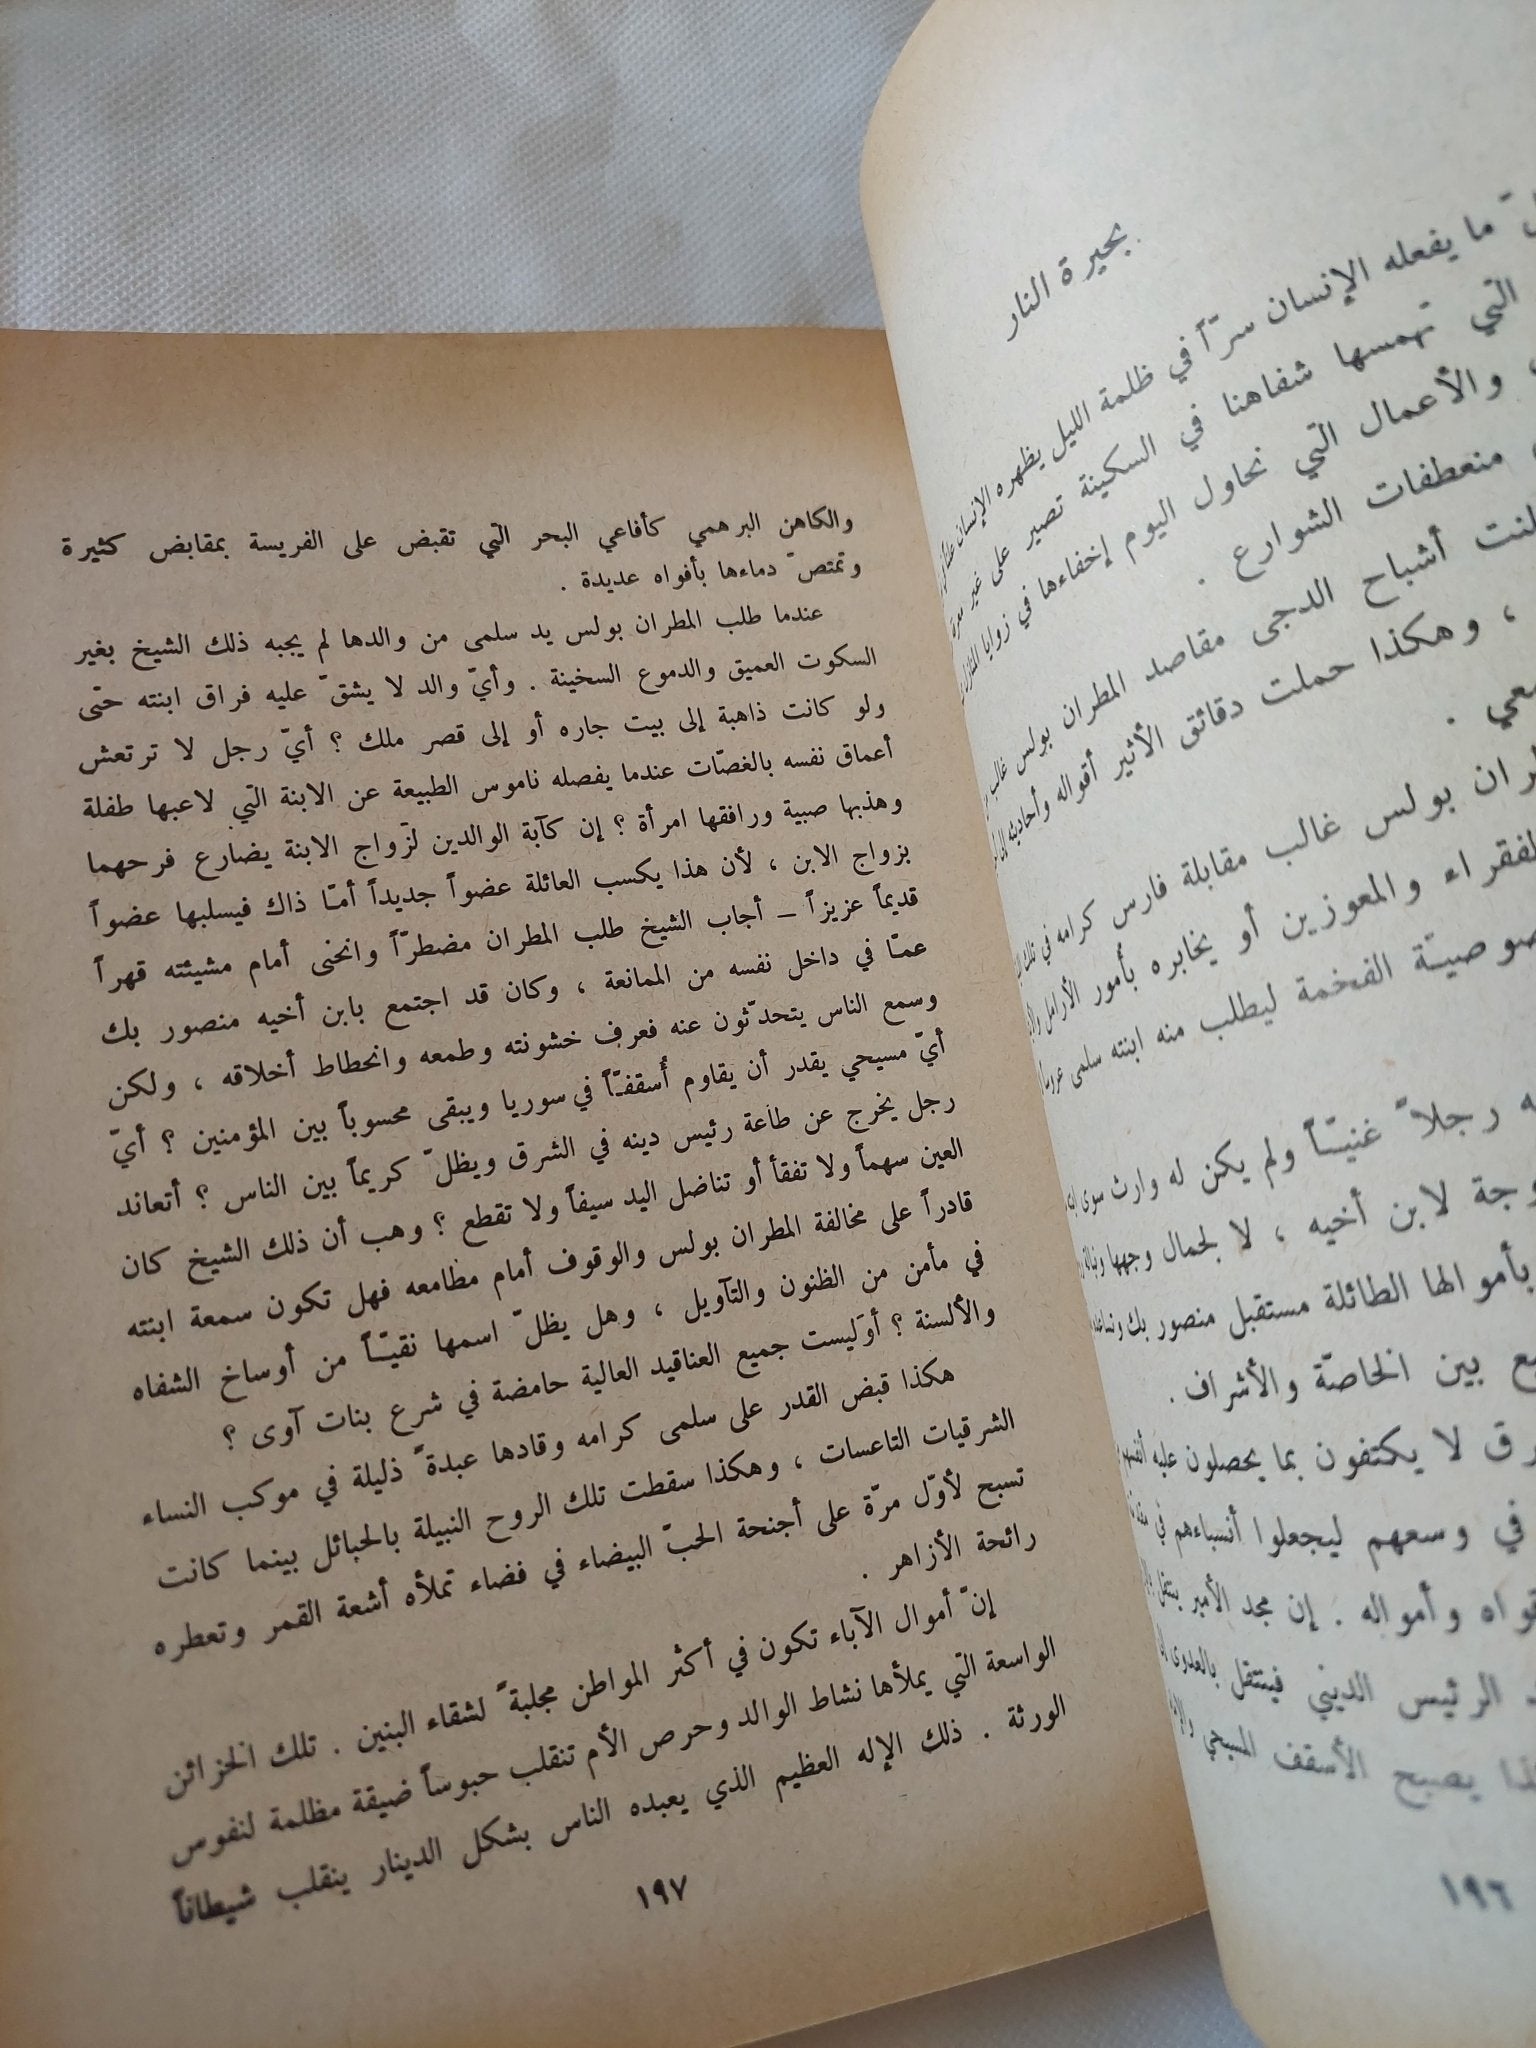 بحيرة النار
ما يفعله الإنسان سرّاً في ظلمة الليل يظهره الإنسان
التي تهمسها شفاهنا في السكينة تصير على غير
والأعمال التي نحاول اليوم إخفاءها في زوايا المنازل
منعطفات الشوارع .
أشباح الدجى مقاصد المطران بولس غالب
، وهكذا حملت دقائق الأثير أقواله وأحاديثه
بولس غالب مقابلة فارس كرامه في
والمعوزين أو يخابره بأمور الأرامل
الفخمة ليطلب منه ابنته سلمى
رجلاً غنيّاً ولم يكن له وارث سوى
لابن أخيه ، لا لجمال وجهها
بأموالها الطائلة مستقبل منصور بك
بين الخاصّة والأشراف .
لا يكتفون بما يحصلون عليه
في وسعهم ليجعلوا أنسباءهم في
وأمواله . إن مجد الأمير ينتقل
الرئيس الديني فينتقل بالعدوى
يصبح الأسقف المسيحي
١٩٦
والكاهن البرهمي كأفاعي البحر التي تقبض على الفريسة بمقابض كثيرة
وتمتصّ دماءها بأفواه عديدة .
عندما طلب المطران بولس يد سلمى من والدها لم يجبه ذلك الشيخ بغير
السكوت العميق والدموع السخينة . وأيّ والد لا يشقّ عليه فراق ابنته حتّى
ولو كانت ذاهبة إلى بيت جاره أو إلى قصر ملك ؟ أيّ رجل لا ترتعش
أعماق نفسه بالغصّات عندما يفصله ناموس الطبيعة عن الابنة التي لاعبها طفلة
وهذبها صبية ورافقها امرأة ؟ إن كآبة الوالدين لزواج الابنة يضارع فرحهما
بزواج الابن ، لأن هذا يكسب العائلة عضواً جديداً أمّا ذاك فيسلبها عضواً
قديماً عزيزاً – أجاب الشيخ طلب المطران مضطرّاً وانحنى أمام مشيئته قهراً
عمّا في داخل نفسه من الممانعة ، وكان قد اجتمع بابن أخيه منصور بك
وسمع الناس يتحدّثون عنه فعرف خشونته وطمعه وانحطاط أخلاقه ، ولكن
أيّ مسيحي يقدر أن يقاوم أُسقفيّاً في سوريا ويبقى محسوباً بين المؤمنين ؟ أيّ
رجل يخرج عن طاعة رئيس دينه في الشرق ويظلّ كريماً بين الناس ؟ أتعاند
العين سهماً ولا تفقأ أو تناضل اليد سيفاً ولا تقطع ؟ وهب أن ذلك الشيخ كان
قادراً على مخالفة المطران بولس والوقوف أمام مطامعه فهل تكون سمعة ابنته
في مأمن من الظنون والتآويل ، وهل يظلّ اسمها نقيّاً من أوساخ الشفاه
والألسنة ؟ أوَليست جميع العناقيد العالية حامضة في شرع بنات آوى ؟
هكذا قبض القدر على سلمى كرامه وقادها عبدةً ذليلة في موكب النساء
الشرقيات التاعسات ، وهكذا سقطت تلك الروح النبيلة بالحبائل بينما كانت
تسبح لأوّل مرّة على أجنحة الحبّ البيضاء في فضاء تملأه أشعة القمر وتعطره
رائحة الأزاهر .
إنّ أموال الآباء تكون في أكثر المواطن مجلبةً لشقاء البنين . تلك الخزائن
الواسعة التي يملأها نشاط الوالد وحرص الأم تنقلب حبوساً ضيقة مظلمة لنفوس
الورثة . ذلك الإله العظيم الذي يعبده الناس بشكل الدينار ينقلب شيطاناً
١٩٧